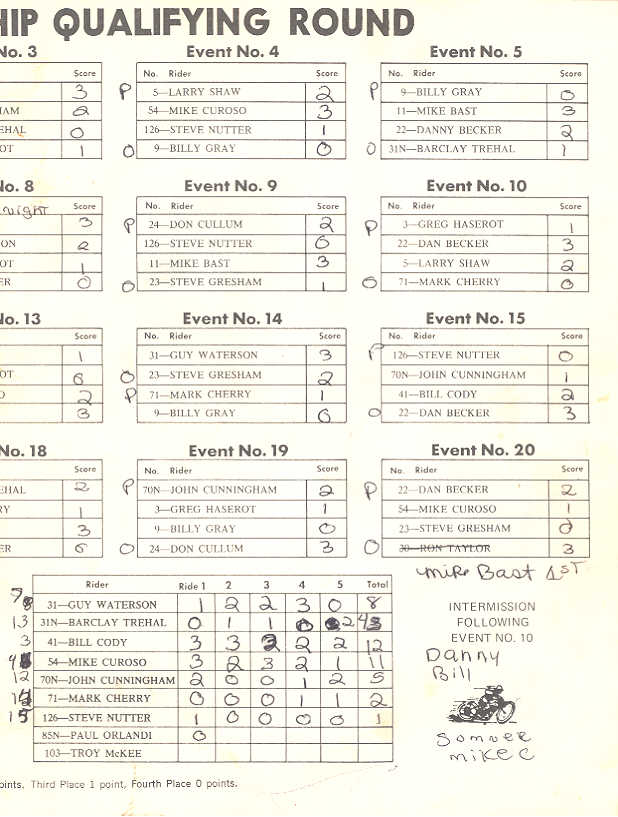 HIP QUALIFYING ROUND
No. 3
Score
3
HAM 2
EHAL 0
OT 1
Event No. 4
No. Rider Score
P 5—LARRY SHAW 2
54—MIKE CUROSO 3
126—STEVE NUTTER 1
O 9—BILLY GRAY 0
Event No. 5
No. Rider Score
P 9—BILLY GRAY 0
11—MIKE BAST 3
22—DANNY BECKER 2
O 31N—BARCLAY TREHAL 1
No. 8
Score
3
ON 2
OT 1
ER 0
Event No. 9
No. Rider Score
P 24—DON CULLUM 2
126—STEVE NUTTER 0
11—MIKE BAST 3
O 23—STEVE GRESHAM 1
Event No. 10
No. Rider Score
P 3—GREG HASEROT 1
22—DAN BECKER 3
5—LARRY SHAW 2
O 71—MARK CHERRY 0
No. 13
Score
1
OT 0
O 2
3
Event No. 14
No. Rider Score
31—GUY WATERSON 3
O 23—STEVE GRESHAM 2
P 71—MARK CHERRY 1
9—BILLY GRAY 0
Event No. 15
No. Rider Score
P 126—STEVE NUTTER 0
70N—JOHN CUNNINGHAM 1
41—BILL CODY 2
O 22—DAN BECKER 3
No. 18
Score
EHAL 2
RY 1
3
ER 0
Event No. 19
No. Rider Score
P 70N—JOHN CUNNINGHAM 2
3—GREG HASEROT 1
9—BILLY GRAY 0
O 24—DON CULLUM 3
Event No. 20
No. Rider Score
P 22—DAN BECKER 2
54—MIKE CUROSO 1
23—STEVE GRESHAM 0
O 30—RON TAYLOR 3
Mike Bast 1ST
Rider Ride 1 2 3 4 5 Total
31—GUY WATERSON 1 2 2 3 0 8
13 31N—BARCLAY TREHAL 0 1 1 0 2
3 41—BILL CODY 3 3 2 2 2 12
54—MIKE CUROSO 3 2 3 2 1 11
12 70N—JOHN CUNNINGHAM 2 0 0 1 2 5
71—MARK CHERRY 0 0 0 1 1 2
15 126—STEVE NUTTER 1 0 0 0 0 1
85N—PAUL ORLANDI 0
103—TROY McKEE
INTERMISSION
FOLLOWING
EVENT NO. 10
Danny
Bill
Somner
Mike C
oints. Third Place 1 point, Fourth Place 0 points.